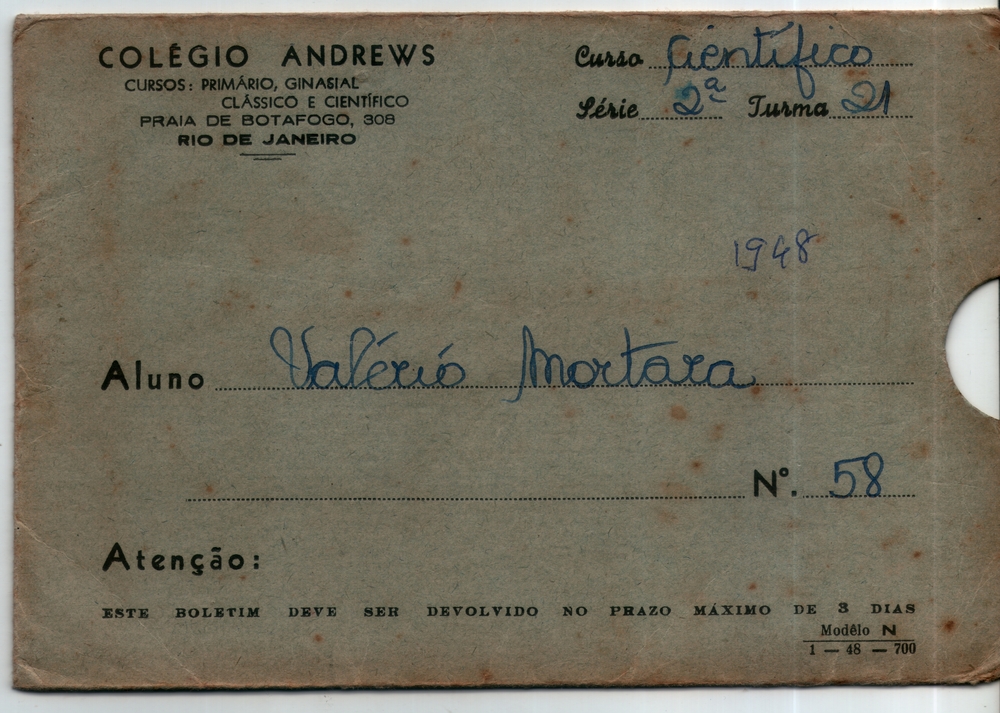 COLÉGIO ANDREWS
CURSOS: PRIMÁRIO, GINASIAL
CLÁSSICO E CIENTÍFICO
PRAIA DE BOTAFOGO, 308
RIO DE JANEIRO
Curso Científico
Série 2ª Turma 21
1948
Aluno Valério Mortara
Nº. 58
Atenção:
ESTE BOLETIM DEVE SER DEVOLVIDO NO PRAZO MÁXIMO DE 3 DIAS
Modêlo N
1 — 48 — 700